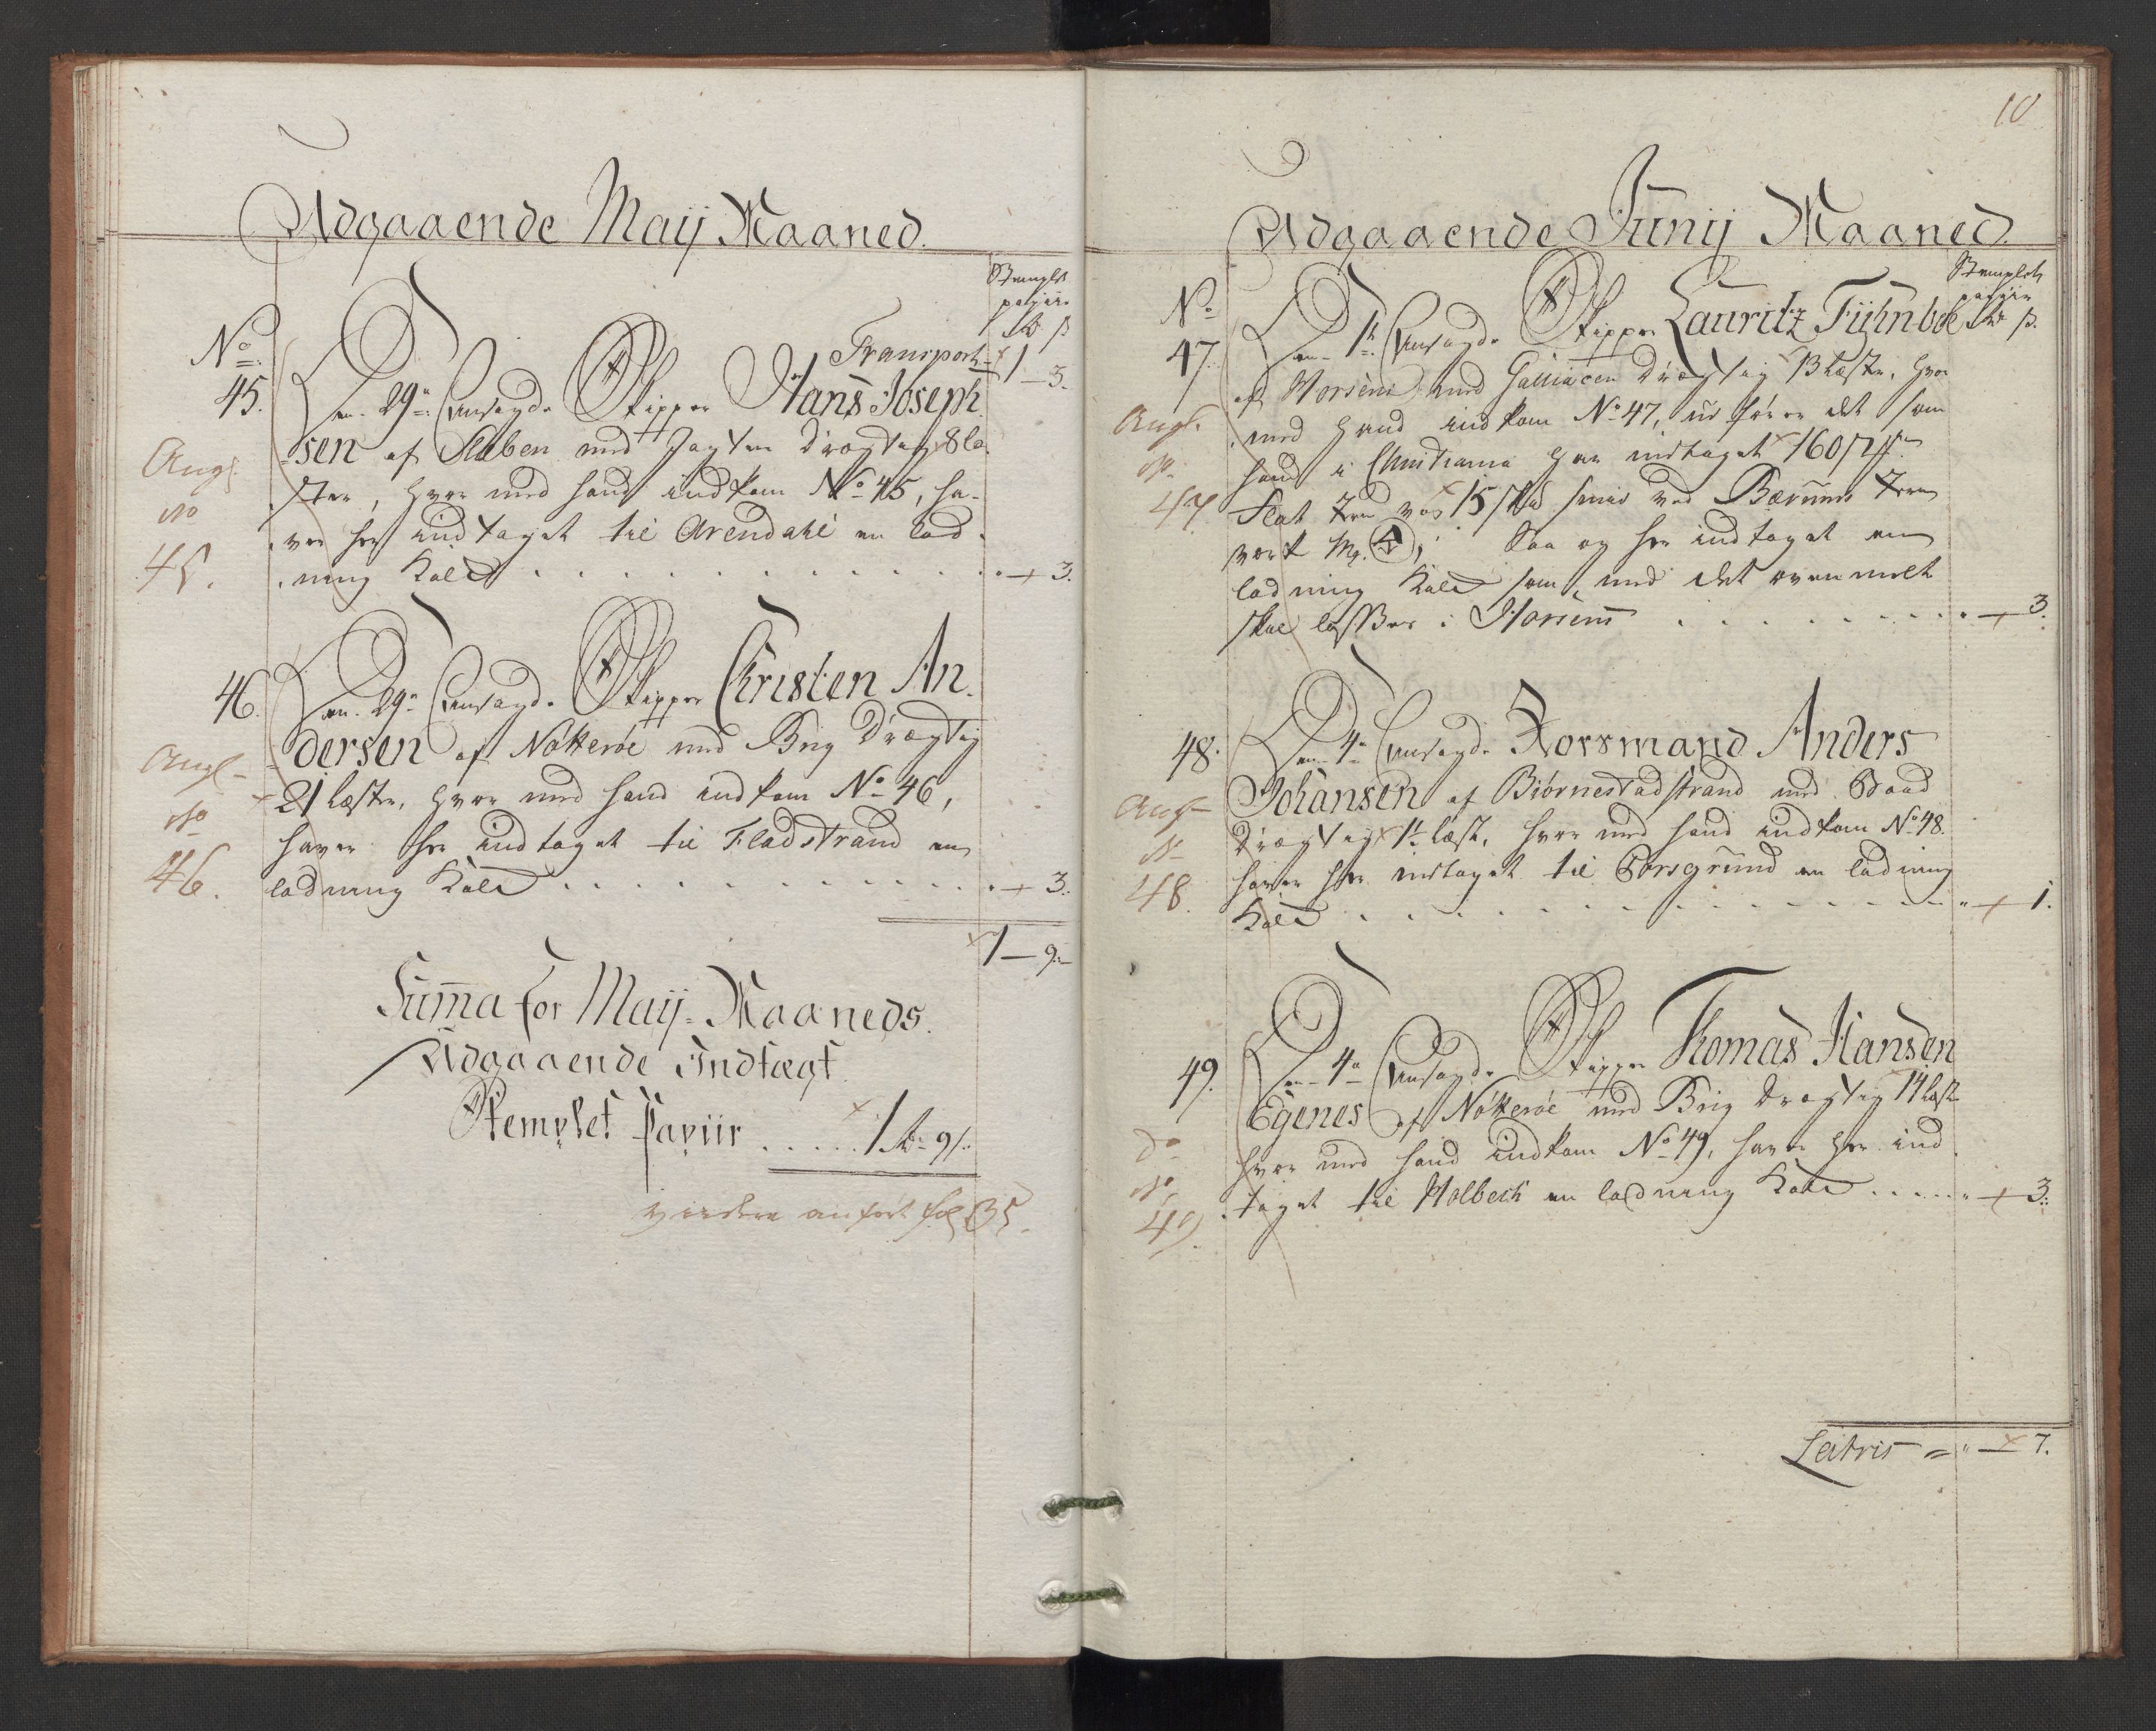 Udgaaende Maij Maaned.
Stemplet
papiir
Rd ß
Transport 1 - 3.
No
45. Den 29de Clarerede Skipper Hans Joseph
sen af Staben med Jagten Drægtig 8 læ
ster, hvor med hand indkom No 45, ha
ver her indtaget til Arendahl en lad
ning Kald . . . . . . 3.
Ang:
No
45.
46. Den 29de Skipper Christen An
dersen af Nötteröe med Brig Drægtig
21 læster, hvor med hand indkom No 46,
haver her indtaget til Fladstrand en
ladning Kald . . . . . . 3.
Ang:
No
46.
1 - 9.
Summa for Maij Maaneds
Udgaaende Indtægt
Stemplet Papiir . . . . . 1 Rd 9 ß
anført fol 35.
10
Udgaaende Junij Maaned.
Stemplet
papiir
Rd ß.
No
47. Den 1te Skipper Lauritz
af Horsens med Galliacen Drægtig 13 læster, hvor
med hand indkom No 47, ud fører det som
hand i Christiania har indtaget 160
15 ved Bærums
verk Mg. Saa og her indtaget en
ladning Kald som med det ovenmelte
skal lossses i Horsens . . . . . . 3.
Ang:
No
47
48. Den 4de Norsmand Anders
Johansen af Biörnestadstrand med Baad
Drægtig 1½ læst, hvor med hand indkom No 48.
haver her indtaget til Porsgrund en ladning
Kald . . . . . . 1.
Ang:
No
48.
49. Den 4de Skipper Thomas Hansen
Egenes af Nötteröe med Brig Drægtig 14 læst
hvor med hand indkom No 49, haver her ind
taget til Holbech en ladning Kald . . . . . 3.
Do
No
49.
Lateris 7.